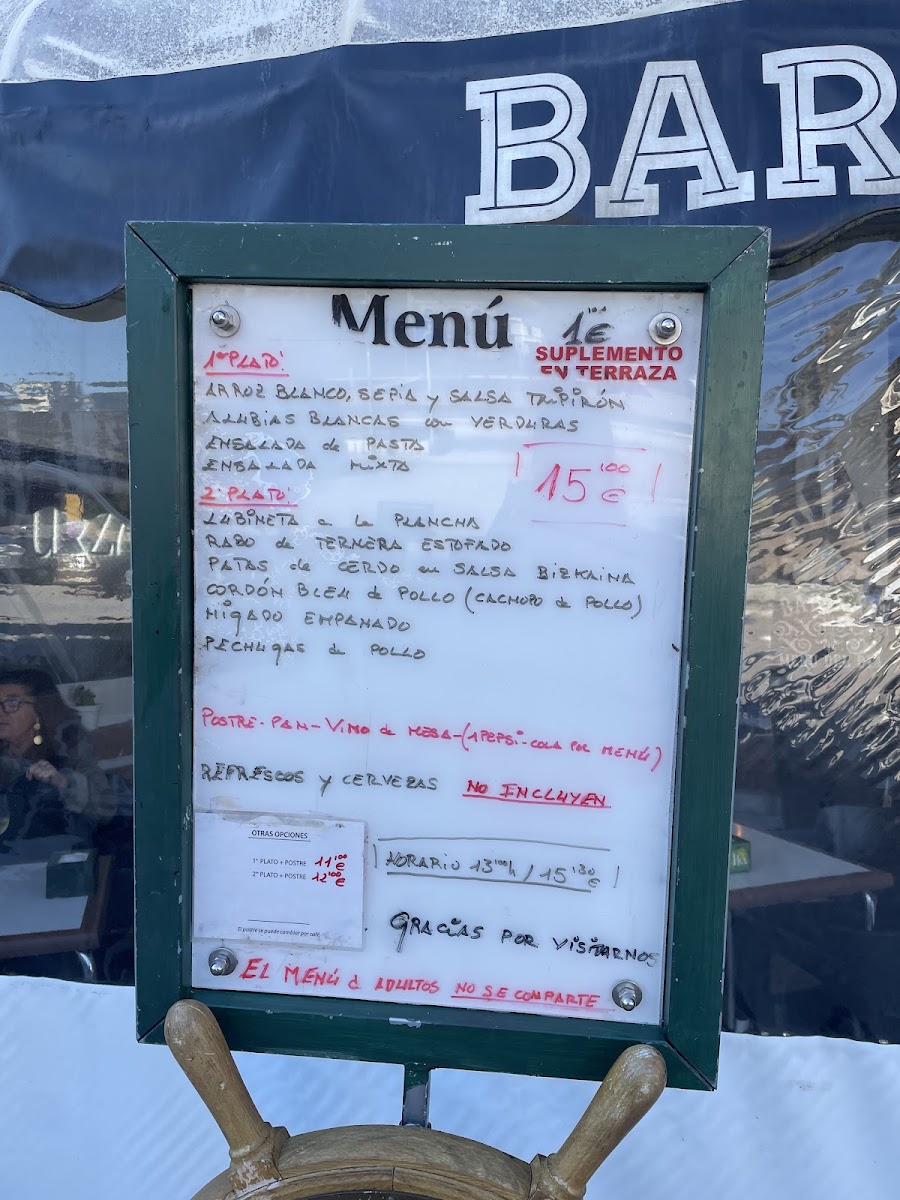 BAR
Menú
1'00 €
SUPLEMENTO
EN TERRAZA
1er PLATO:
ARROZ BLANCO, SEPIA y SALSA TXIPIRÓN
ALUBIAS BLANCAS con VERDURAS
ENSALADA de PASTA
ENSALADA MIXTA
15'00 €
2º PLATO:
LUBINETA a la PLANCHA
RABO de TERNERA ESTOFADO
PATAS de CERDO en SALSA BIZKAINA
CORDÓN BLEU de POLLO (CACHOPO de POLLO)
HÍGADO EMPANADO
PECHUGAS de POLLO
POSTRE - PAN - VINO de MESA - (1 PEPSI-COLA POR MENÚ)
REFRESCOS y CERVEZAS NO INCLUYEN
OTRAS OPCIONES
1º PLATO + POSTRE 11'00 €
2º PLATO + POSTRE 12'00 €
El postre se puede cambiar por café
HORARIO 13'00h / 15'30
GRACIAS POR VISITARNOS
EL MENÚ de ADULTOS NO SE COMPARTE